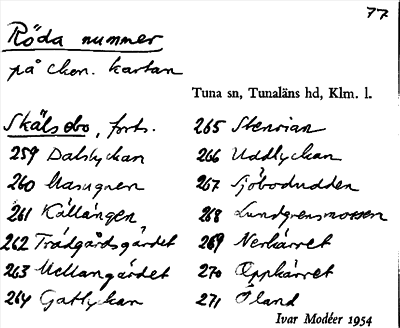 77
Röda nummer
på ekon. kartan
Tuna sn, Tunaläns hd, Klm. l.
Skälsebo, forts.
259 Dalslyckan
260 Masugnen
261 Källängen
262 Trädgårdsgärdet
263 Mellangärdet
264 Gatlyckan
265 Stenvian
266 Uddlyckan
267 Sjöbodudden
268 Lundgrensmossen
269 Nerkärret
270 Oppkärret
271 Öland
Ivar Modéer 1954